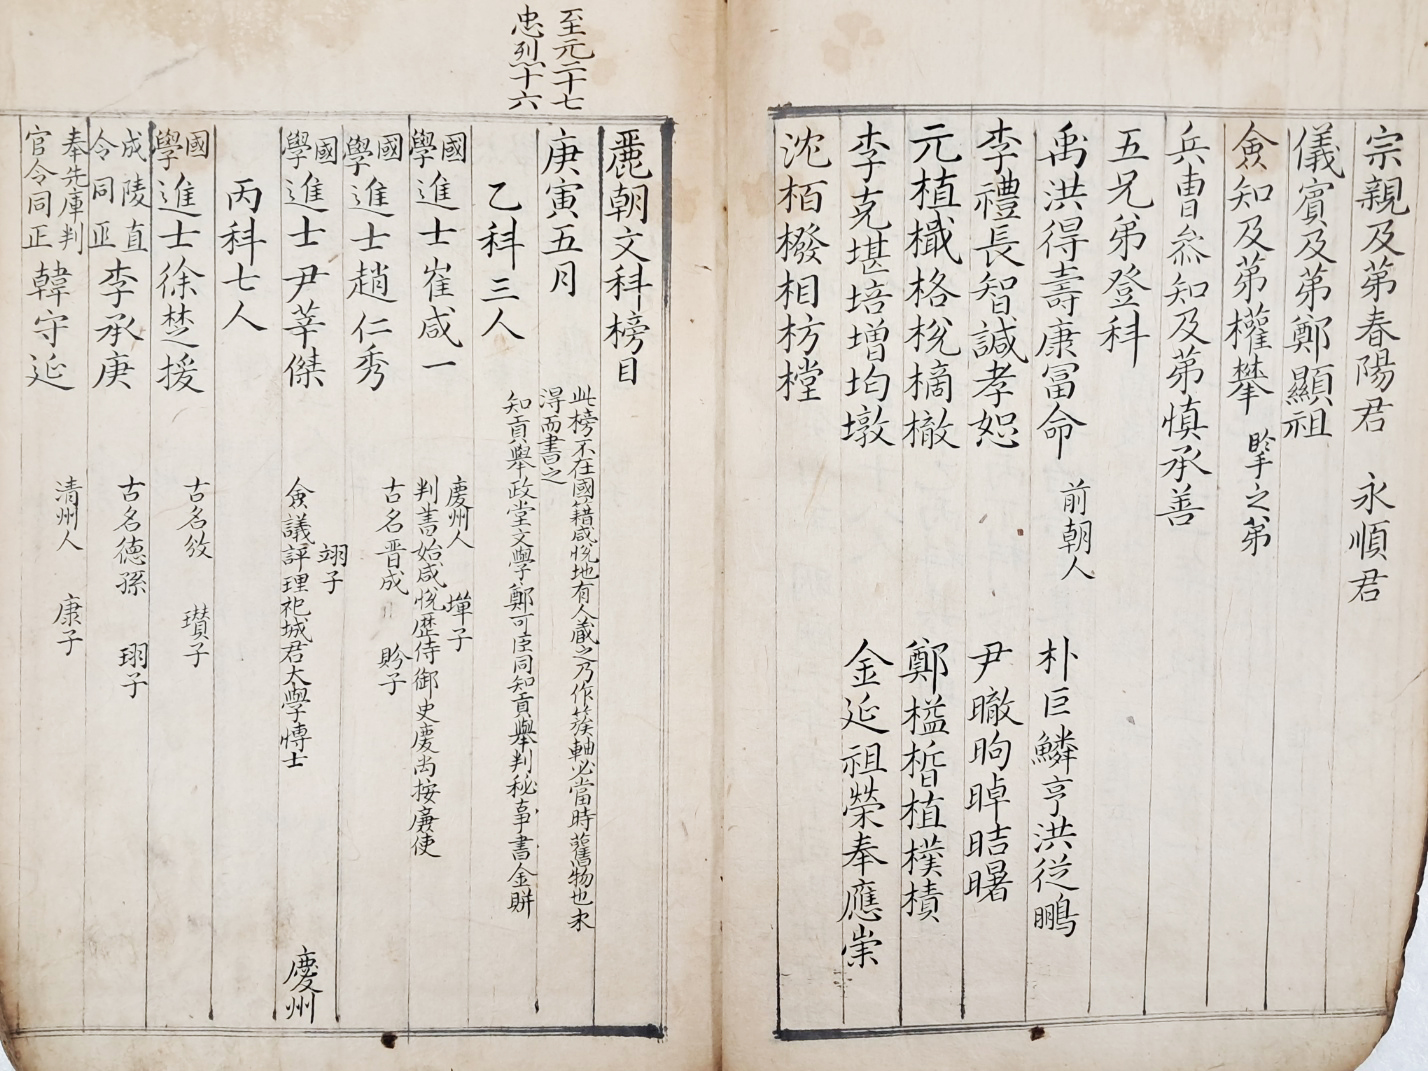 宗親及第春陽君 永順君
儀賓及第鄭顯祖
僉知及第權攀 擥之弟
兵曹叅知及第愼承善
五兄弟登科
禹洪得壽康冨命 前朝人 朴巨鱗亨洪從鵬
李禮長智諴孝恕 尹暾昫晫晧曙
元植樴格梲樀樴 鄭楹晳植樸樍
李克堪培增均墩 金延祖榮奉應崇
沈栢橃相枋樘
至元二十七
忠烈十六
麗朝文科榜目
此榜不在國籍咸悅地有人藏之乃作簇軸必當時舊物也求
得而書之
庚寅五月
知貢舉政堂文學鄭可臣同知貢舉判秘事書金賆
乙科三人
國學進士崔咸一 慶州人 墠子
判書始咸悅歷侍御史慶尙按廉使
國學進士趙仁秀 古名晋成 昑子
國學進士尹莘傑 翊子
僉議評理祀城君大學博士 慶州
丙科七人
國學進士徐椘援 古名攽 瓉子
成陵直令同正李承庚 古名德孫 珝子
奉先庫判官令同正韓守延 清州人 康子